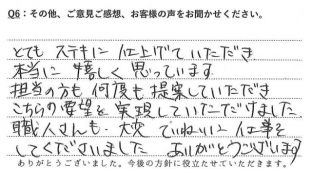 Q6：その他、ご意見ご感想、お客様の声をお聞かせください。
とても ステキに 仕上げて いただき
本当に 嬉しく 思っています
担当の方も 何度も 提案していただき
こちらの要望を 実現していただけました
職人さんも 大変 ていねいに 仕事を
してくださいました ありがとうございます
ありがとうございました。今後の方針に役立たせていただきます。